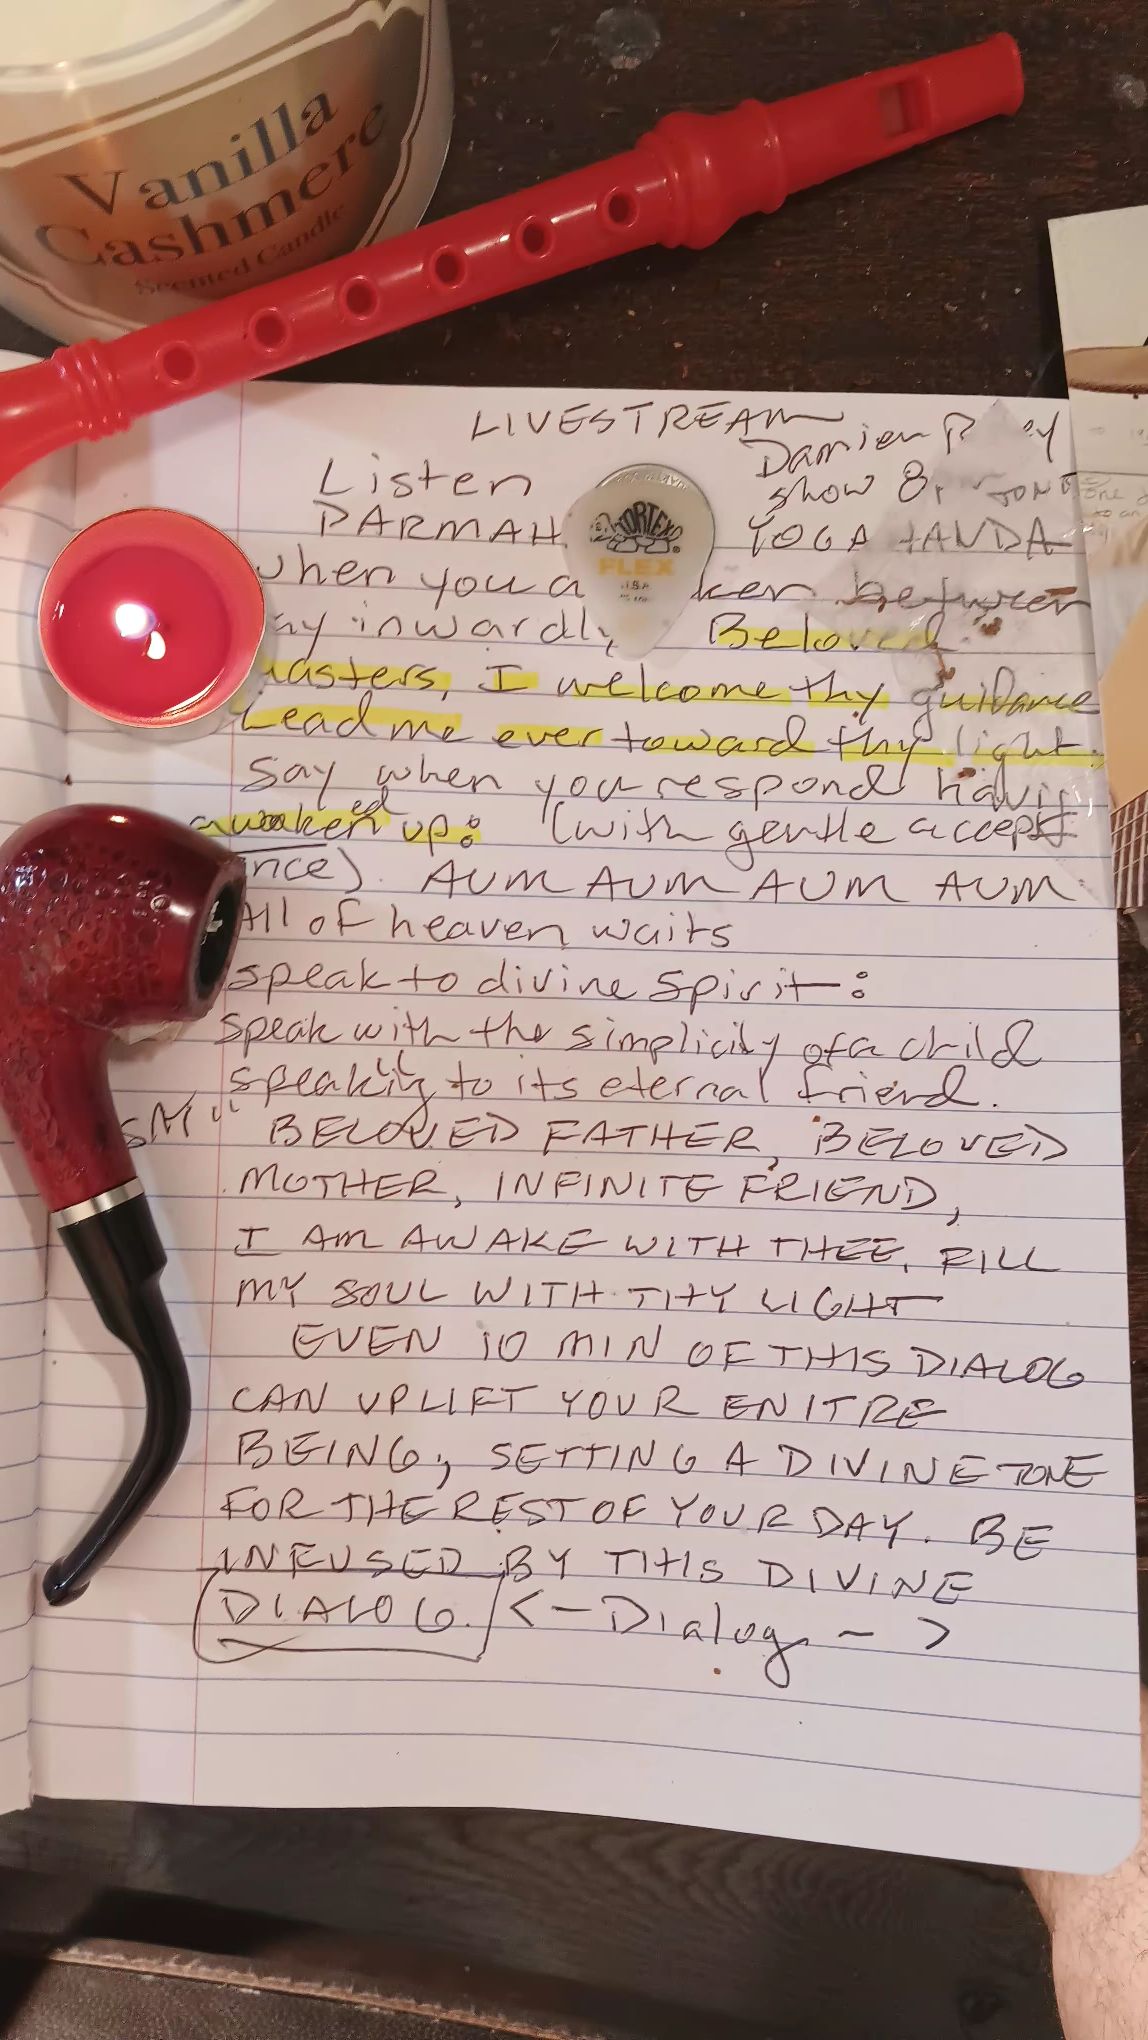 Vanilla
Cashmere
Scented Candle
LIVESTREAM
Damien
Listen
show 8
PARMAH
YOGA ANDA
TORTEX
FLEX
U.S.A
when you a ken between
ay inwardly Beloved
asters, I welcome thy guidance
Lead me ever toward thy light.
Say when you respond havi
awakened up: (with gentle accept
ance). AUM AUM AUM AUM
All of heaven waits
speak to divine spirit:
speak with the simplicity of a child
speaking to its eternal friend.
SAY " BELOVED FATHER, BELOVED
MOTHER, INFINITE FRIEND,
I AM AWAKE WITH THEE, FILL
MY SOUL WITH THY LIGHT
EVEN 10 MIN OF THIS DIALOG
CAN UPLIFT YOUR ENITRE
BEING, SETTING A DIVINE TONE
FOR THE REST OF YOUR DAY. BE
INFUSED BY THIS DIVINE
DIALOG. <- Dialog - >